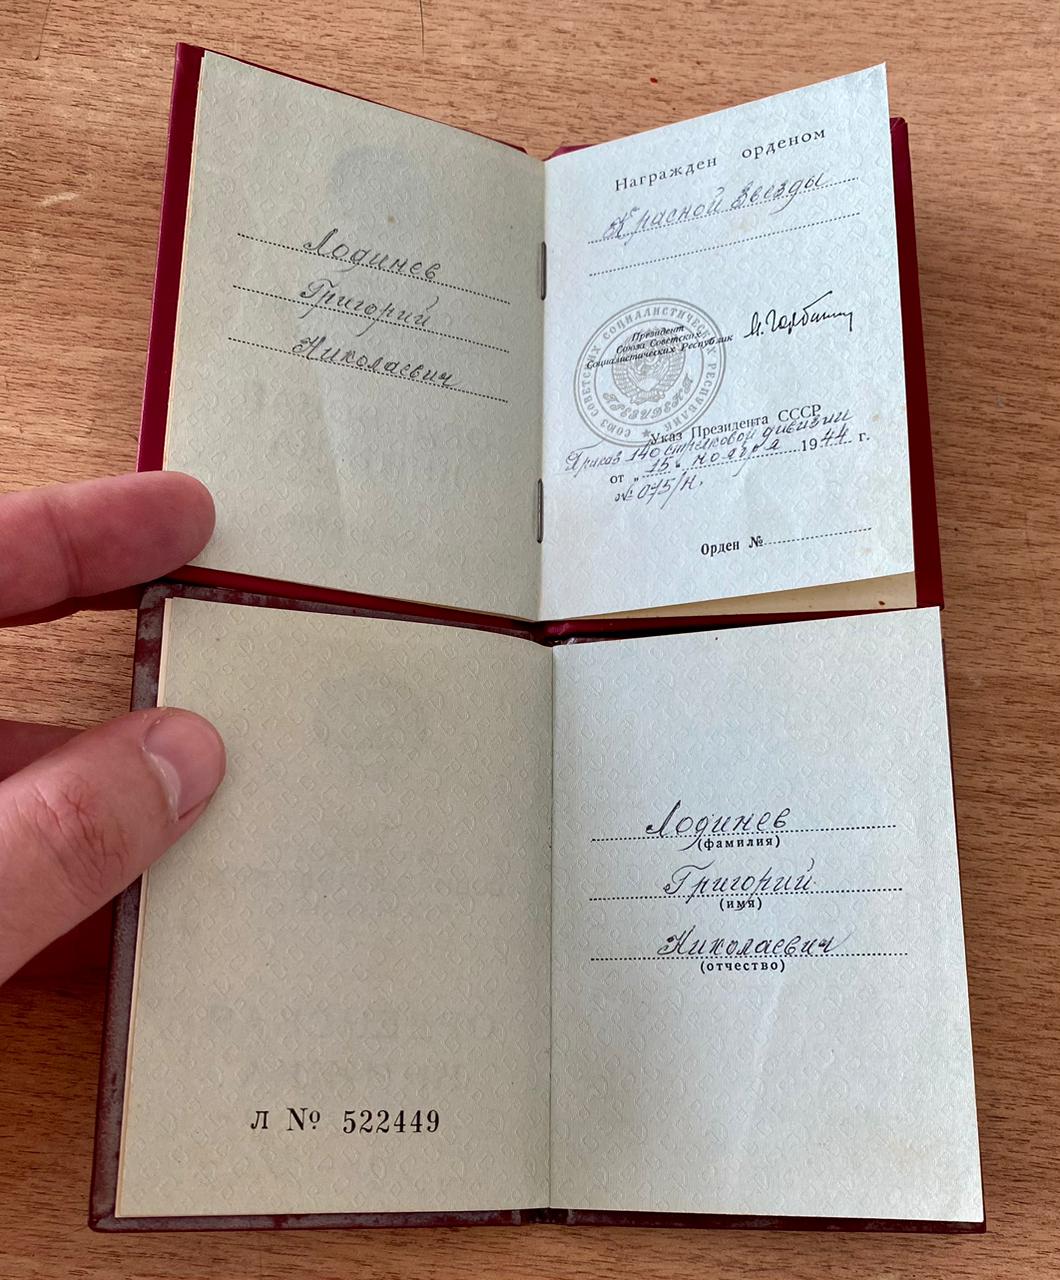 Лодинев
Григорий
Николаевич
Награжден орденом
Красной Звезды
СОЮЗ СОВЕТСКИХ СОЦИАЛИСТИЧЕСКИХ РЕСПУБЛИК
ПРЕЗИДЕНТ
Президент
Союза Советских
Социалистических Республик
М. Горбачев
Указ Президента СССР
Приказ 140 стрелковой дивизии
от „ 15 “ ноября 1944 г.
№ 075/н.
Орден №
Лодинев
(фамилия)
Григорий
(имя)
Николаевич
(отчество)
Л № 522449